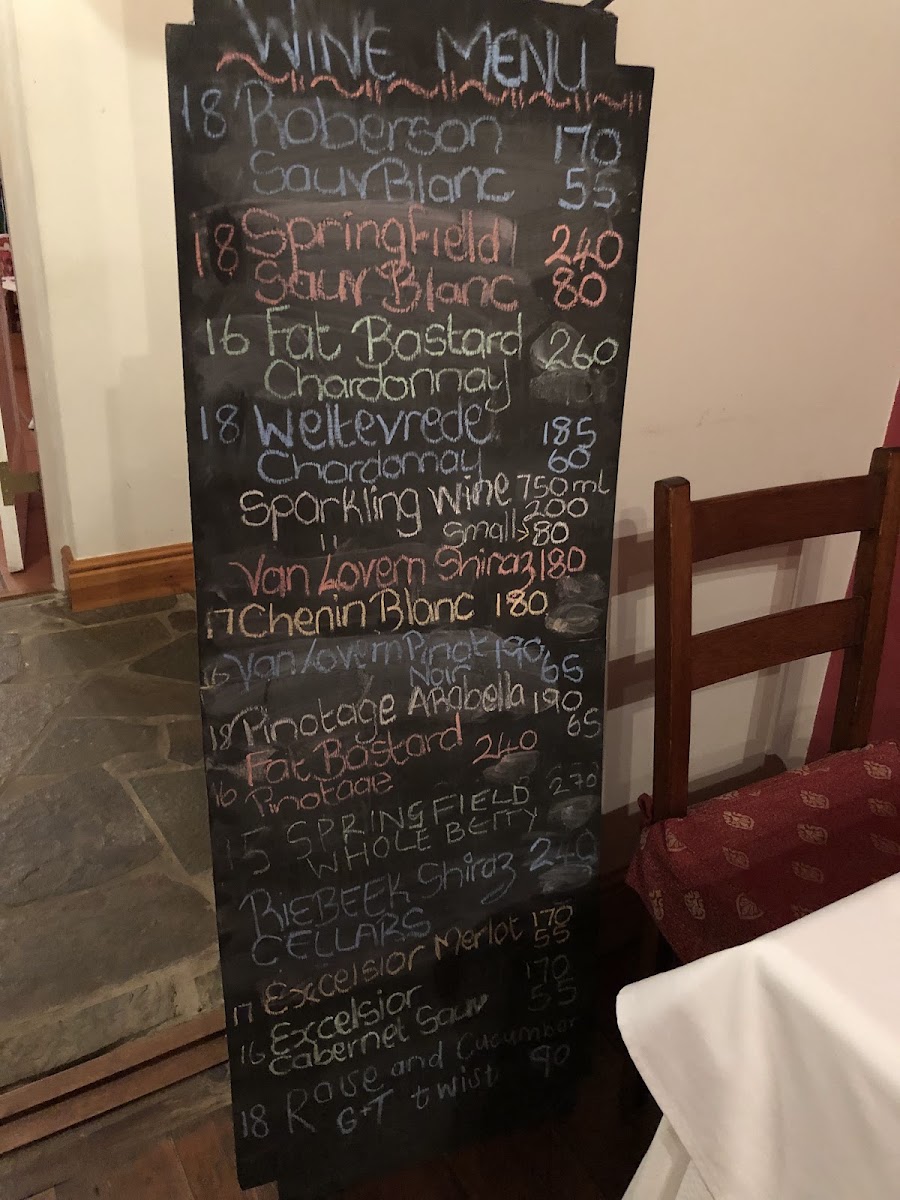 WINE MENU
18 Roberson 170
Sauv Blanc 55
18 Springfield 240
Sauv Blanc 80
16 Fat Bastard 260
Chardonnay
18 Weltevrede 185
Chardonnay 60
Sparkling Wine 750ml
200
" Small> 80
Van Lovern Shiraz 180
17 Chenin Blanc 180
16 Van Lovern Pinot 190
Noir 65
18 Pinotage Arabella 190
65
Fat Bastard 240
16 Pinotage
15 SPRINGFIELD 270
WHOLE BERRY
RIEBEEK Shiraz 240
CELLARS
17 Excelsior Merlot 170
55
Excelsior 170
16 Cabernet Sauv 55
18 Rose and Cucumber
G+T twist 90